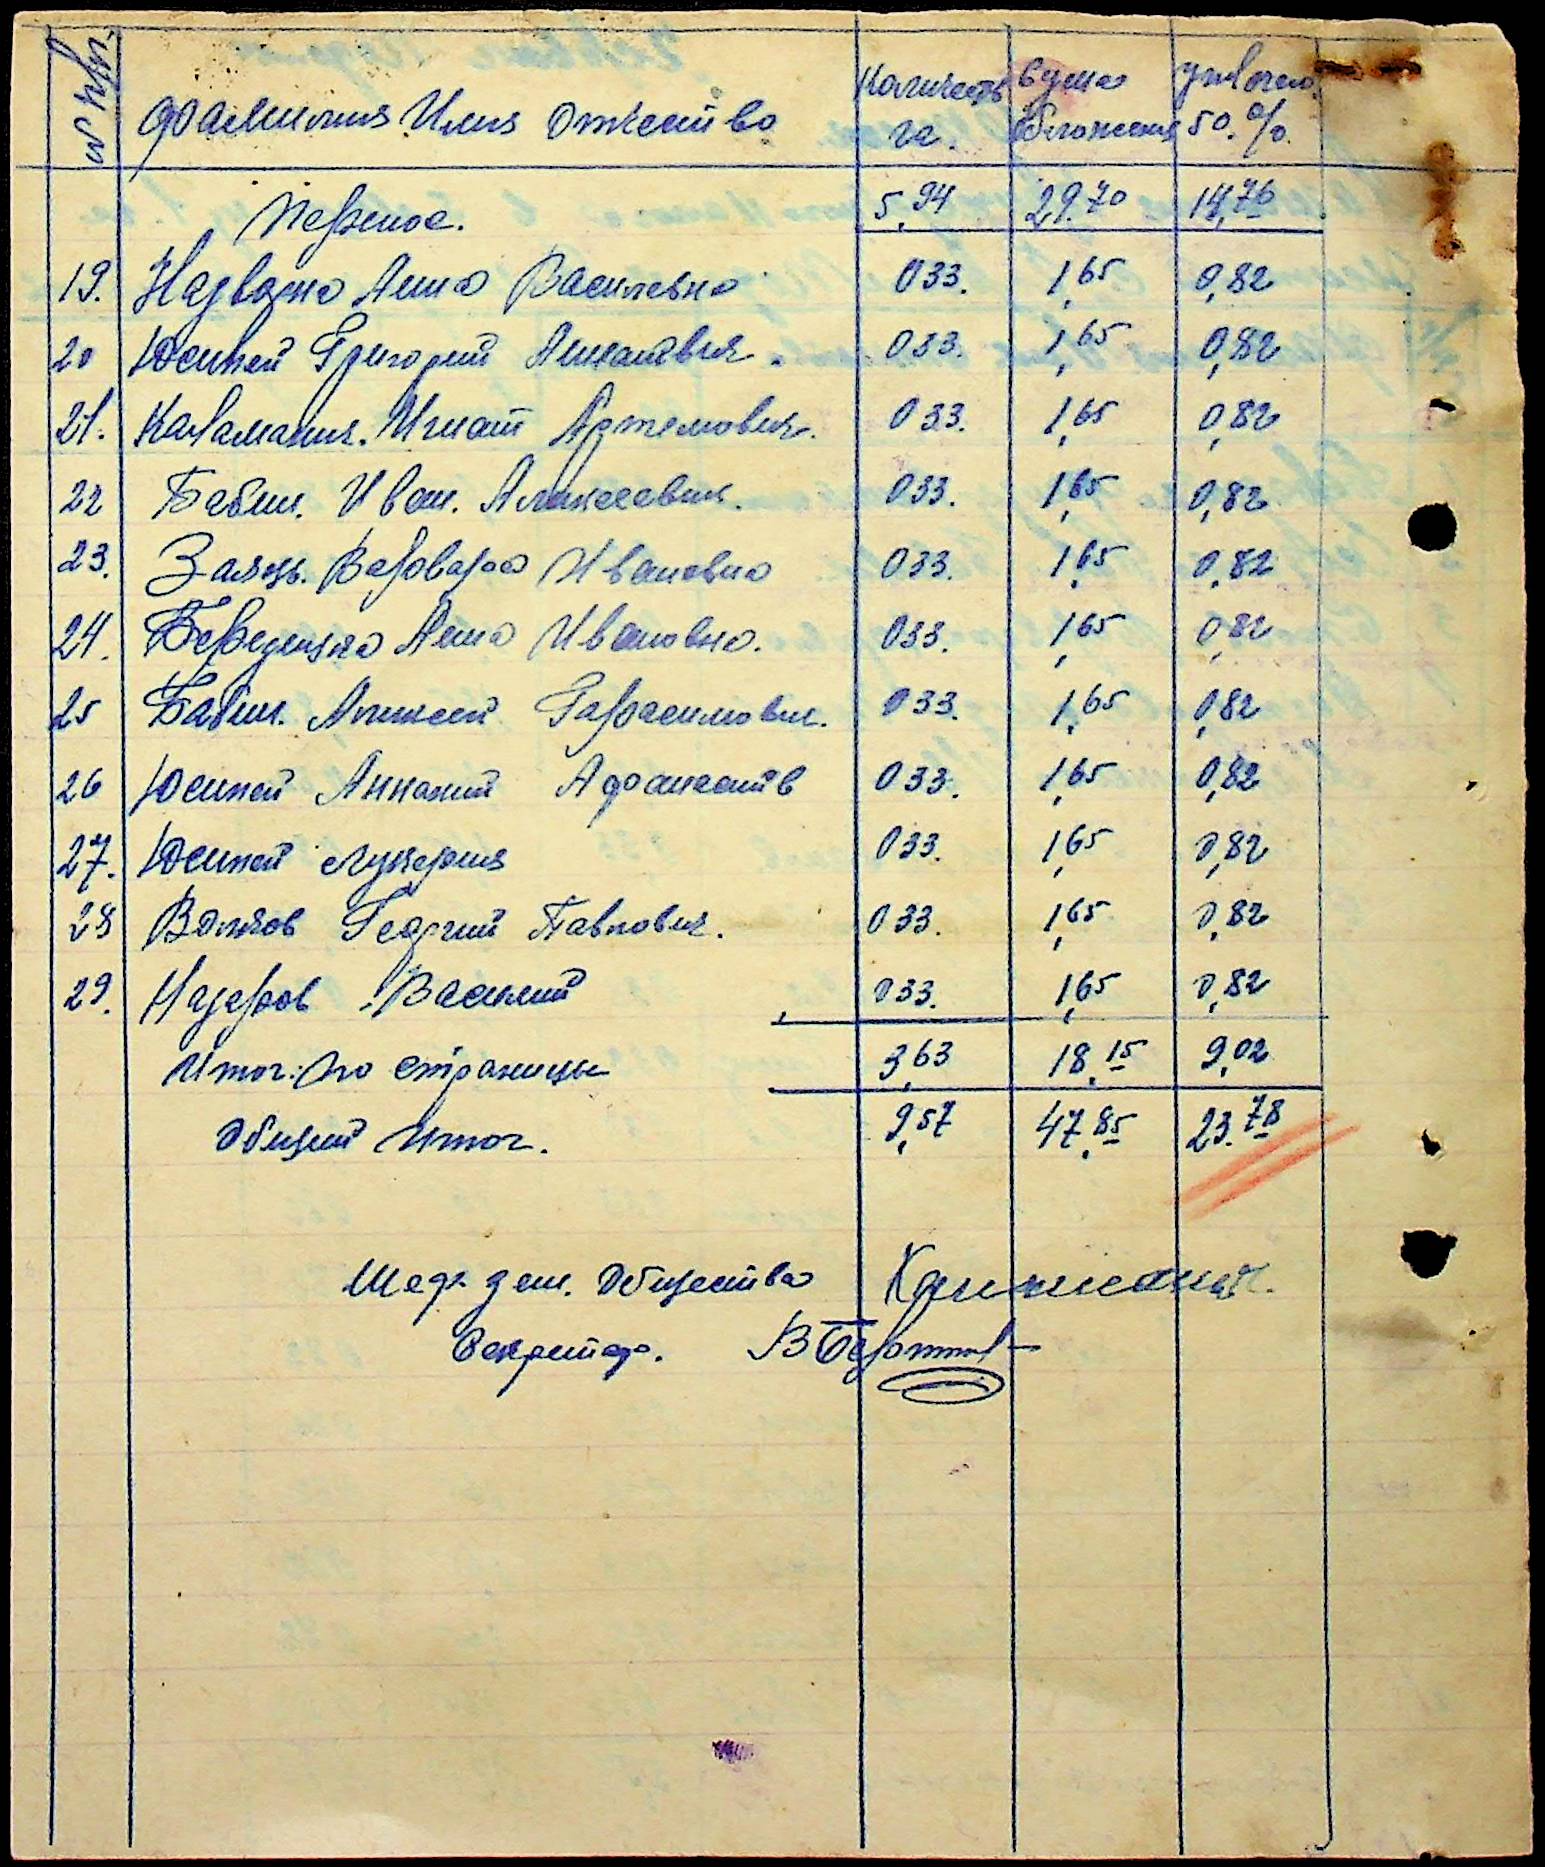 № п/п. Фамилия Имя Отчество Количеств га. Сума обложения 50. %.
Перенос. 5,94 29.70 14,76
19. Надвожа Анна Василевна 033. 1,65 0,82
20 Юсипей Григорий 033. 1,65 0,82
21. Каламанич. Игнат Артемович. 033. 1,65 0,82
22 Бабич. Иван. Алексеевич. 033. 1,65 0,82
23. Заяць. Варвара Ивановна 033. 1,65 0,82
24. Анна Ивановна. 033. 1,65 0,82
25 Бабич. Алексей Гарасимович. 033. 1,65 0,82
26 Юсипей Ананий Афанасиив 033. 1,65 0,82
27. Юсипей Лукерия 033. 1,65 0,82
28 Волков Георгий Павлович. 033. 1,65 0,82
29. Назаров Василий 033. 1,65 0,82
Итог: по страницы 3,63 18,15 9,02
Общий Итог. 9,57 47,85 23.78
зем. Общества
Секретарь.